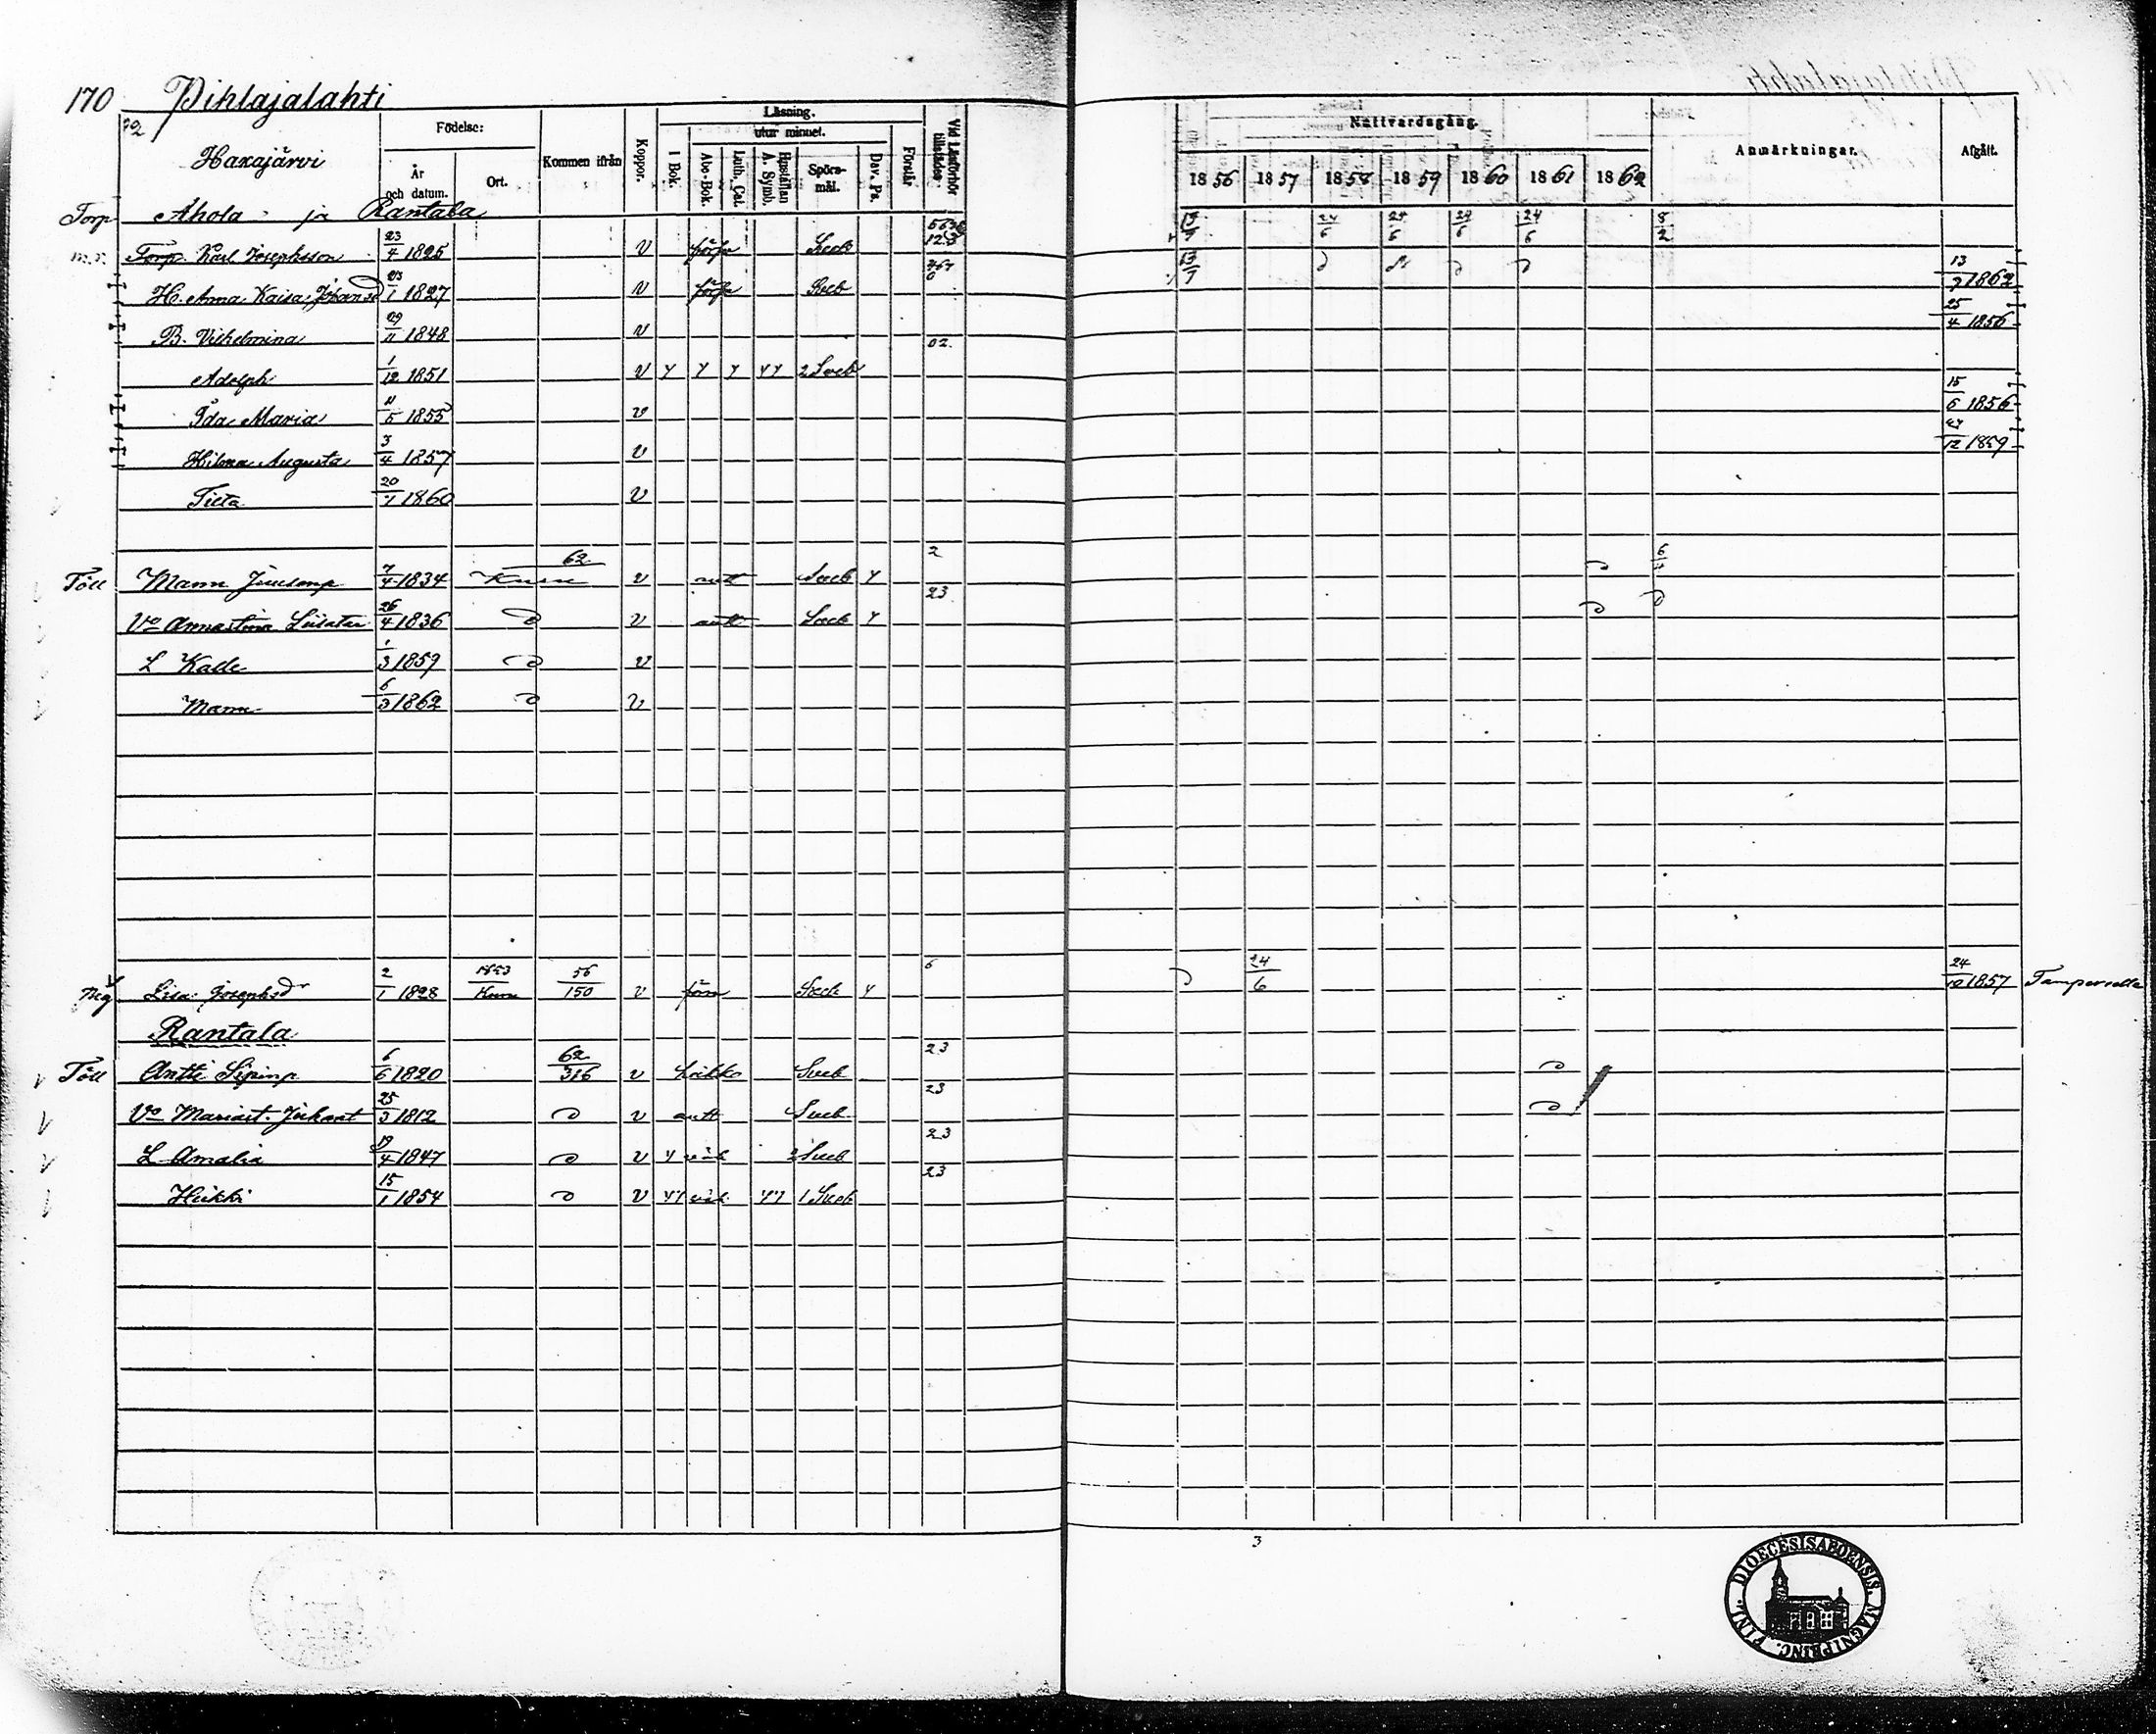 170 Pihlajalahti
72
Haxajärvi
Födelse:
År och datum.
Ort.
Kommen ifrån
Koppor.
Läsning.
I Bok.
utur minnet.
Abc-Bok.
Luth. Cat.
Hustaflan A. Symb.
Spörs-mål.
Dav. Ps.
Förstår
Vid Läsförhör tillstädes:
Nattvardsgång.
1856 1857 1858 1859 1860 1861 1862
Anmärkningar.
Afgått.
Torp Ahola ja Rantala
Torp. Karl Josephsson 23/4 1825 v Sveb 24/6 24/6 24/6 24/6 8/2
H. Anna Kaisa Johansd 23/1 1827 v Sveb 13/7 13/7 1862
B. Vilhelmina 29/11 1848 v 25/4 1856
Adolph 1/12 1851 v 2 Sveb 02.
Ida Maria 11/5 1855 v 15/6 1856
Hilma Augusta 3/4 1857 v 27/12 1859
Tilta 20/7 1860 v
Töll Mann 7/4 1834 62 v autt Sveb 2
Vo Annastina Liisatar 26/4 1836 v autt Sveb 23
L Kalle 1/3 1859 v
Mann 6/3 1862 v
Pig Lisa Josephsdr 2/1 1828 1853 56/150 v Sveb 6 24/6 24/10 1857 Tampereelle
Rantala
Töll Antti 6/6 1820 62/316 v Sveb 23
Vo Mariast. 25/3 1812 v autt Sveb 23
L Amalia 19/4 1847 v 2 Sveb 23
Heikki 15/1 1854 v 1 Sveb 23
3
DIOECESIS ABOENSIS. MAGN. PRINC. FINL.